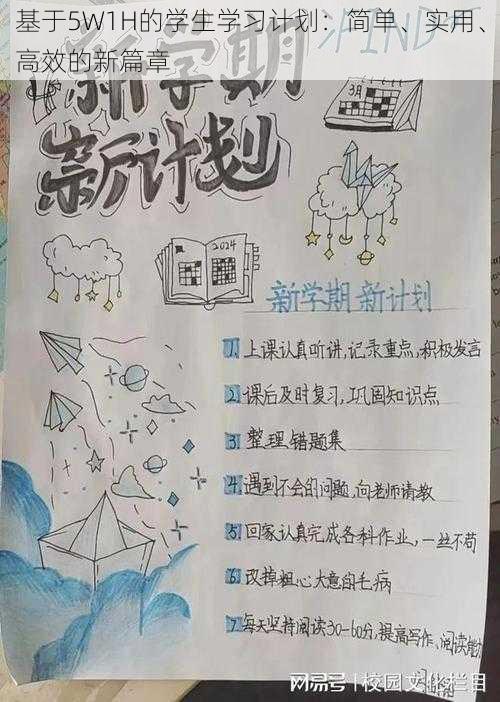 基于5W1H的学生学习计划：简单、实用、
高效的新篇章
新学期
新计划
3月
2024
新学期 新计划
1. 上课认真听讲,记录重点,积极发言
2. 课后及时复习,巩固知识点
3. 整理错题集
4. 遇到不会的问题,向老师请教
5. 回家认真完成各科作业,一丝不苟
6. 改掉粗心大意的毛病
7. 每天坚持阅读30-60分,提高写作、阅读能力
网易号 | 校园文化栏目